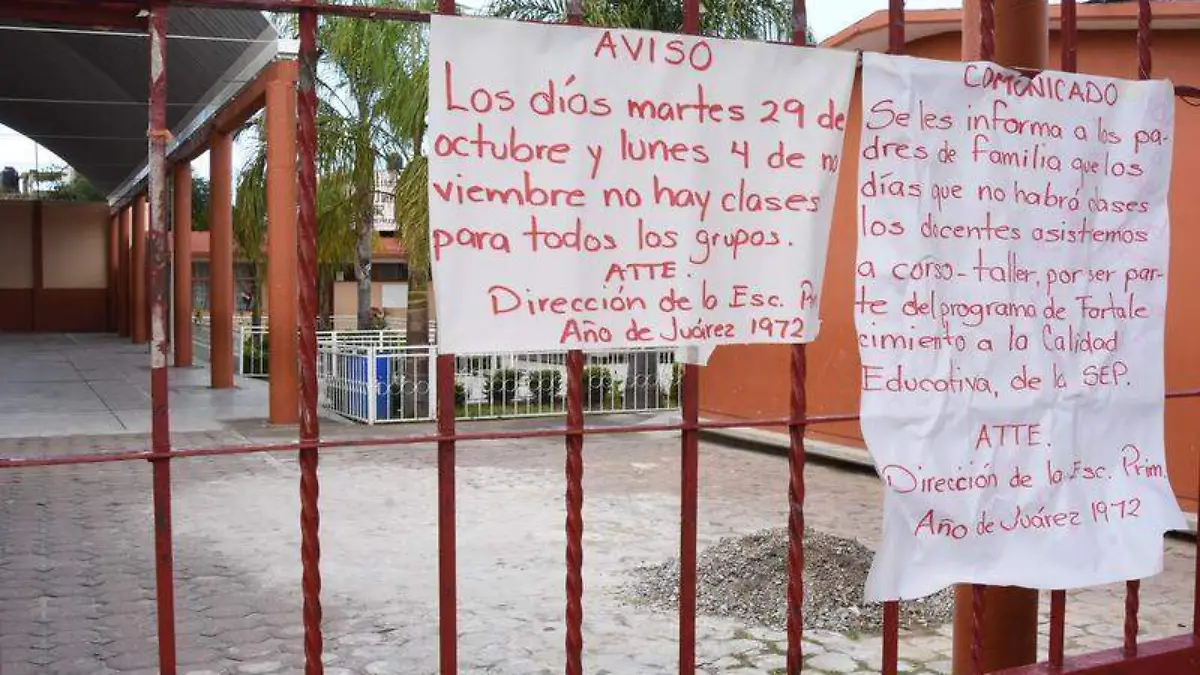 AVISO
Los días martes 29 de
octubre y lunes 4 de no
viembre no hay clases
para todos los grupos.
ATTE.
Dirección de la Esc. Prim
Año de Juárez 1972
COMUNICADO
Se les informa a los pa-
dres de familia que los
días que no habrá clases
los docentes asistemos
a curso-taller, por ser par-
te del programa de Fortale
cimiento a la Calidad
Educativa, de la SEP.
ATTE.
Dirección de la Esc. Prim.
Año de Juárez 1972